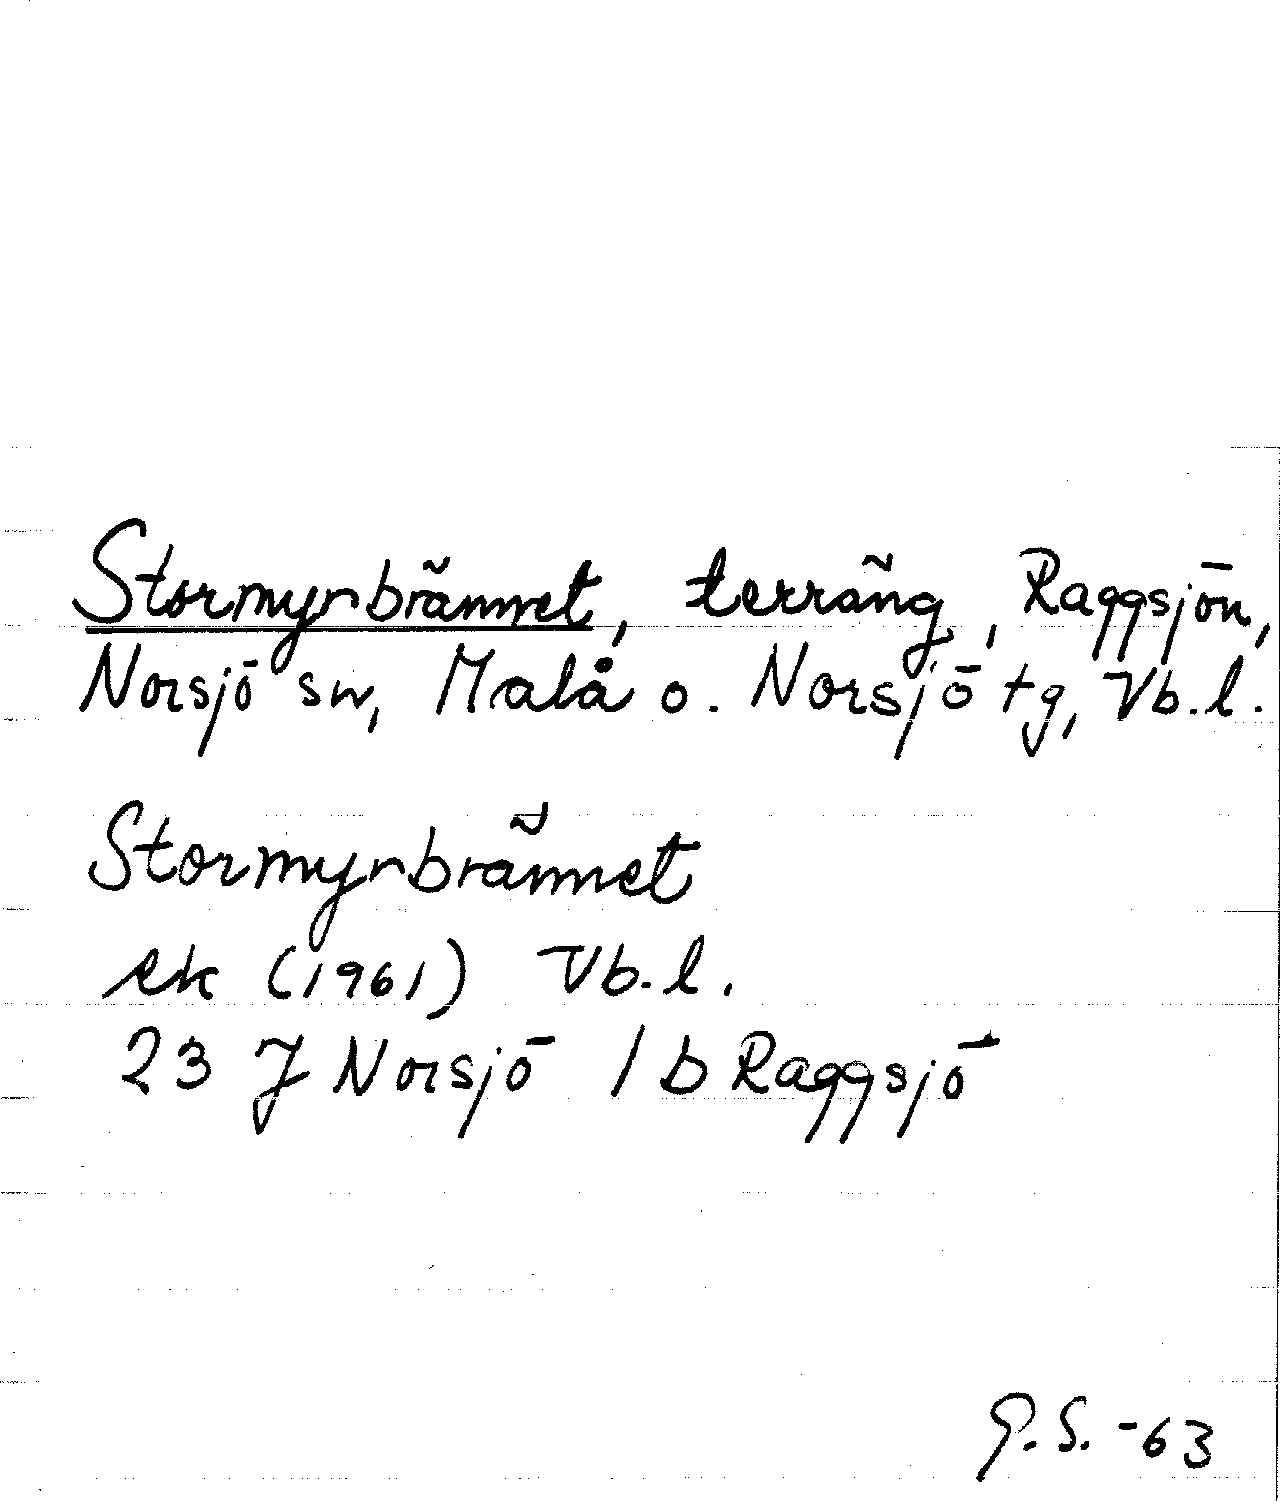 Stormyrbrännet, terräng, Raggsjön,
Norsjö sn, Malå o. Norsjö tg, Vb.l.
Stormyrbrännet
ek (1961) Vb.l.
23 J Norsjö 1 b Raggsjö
G.S. -63